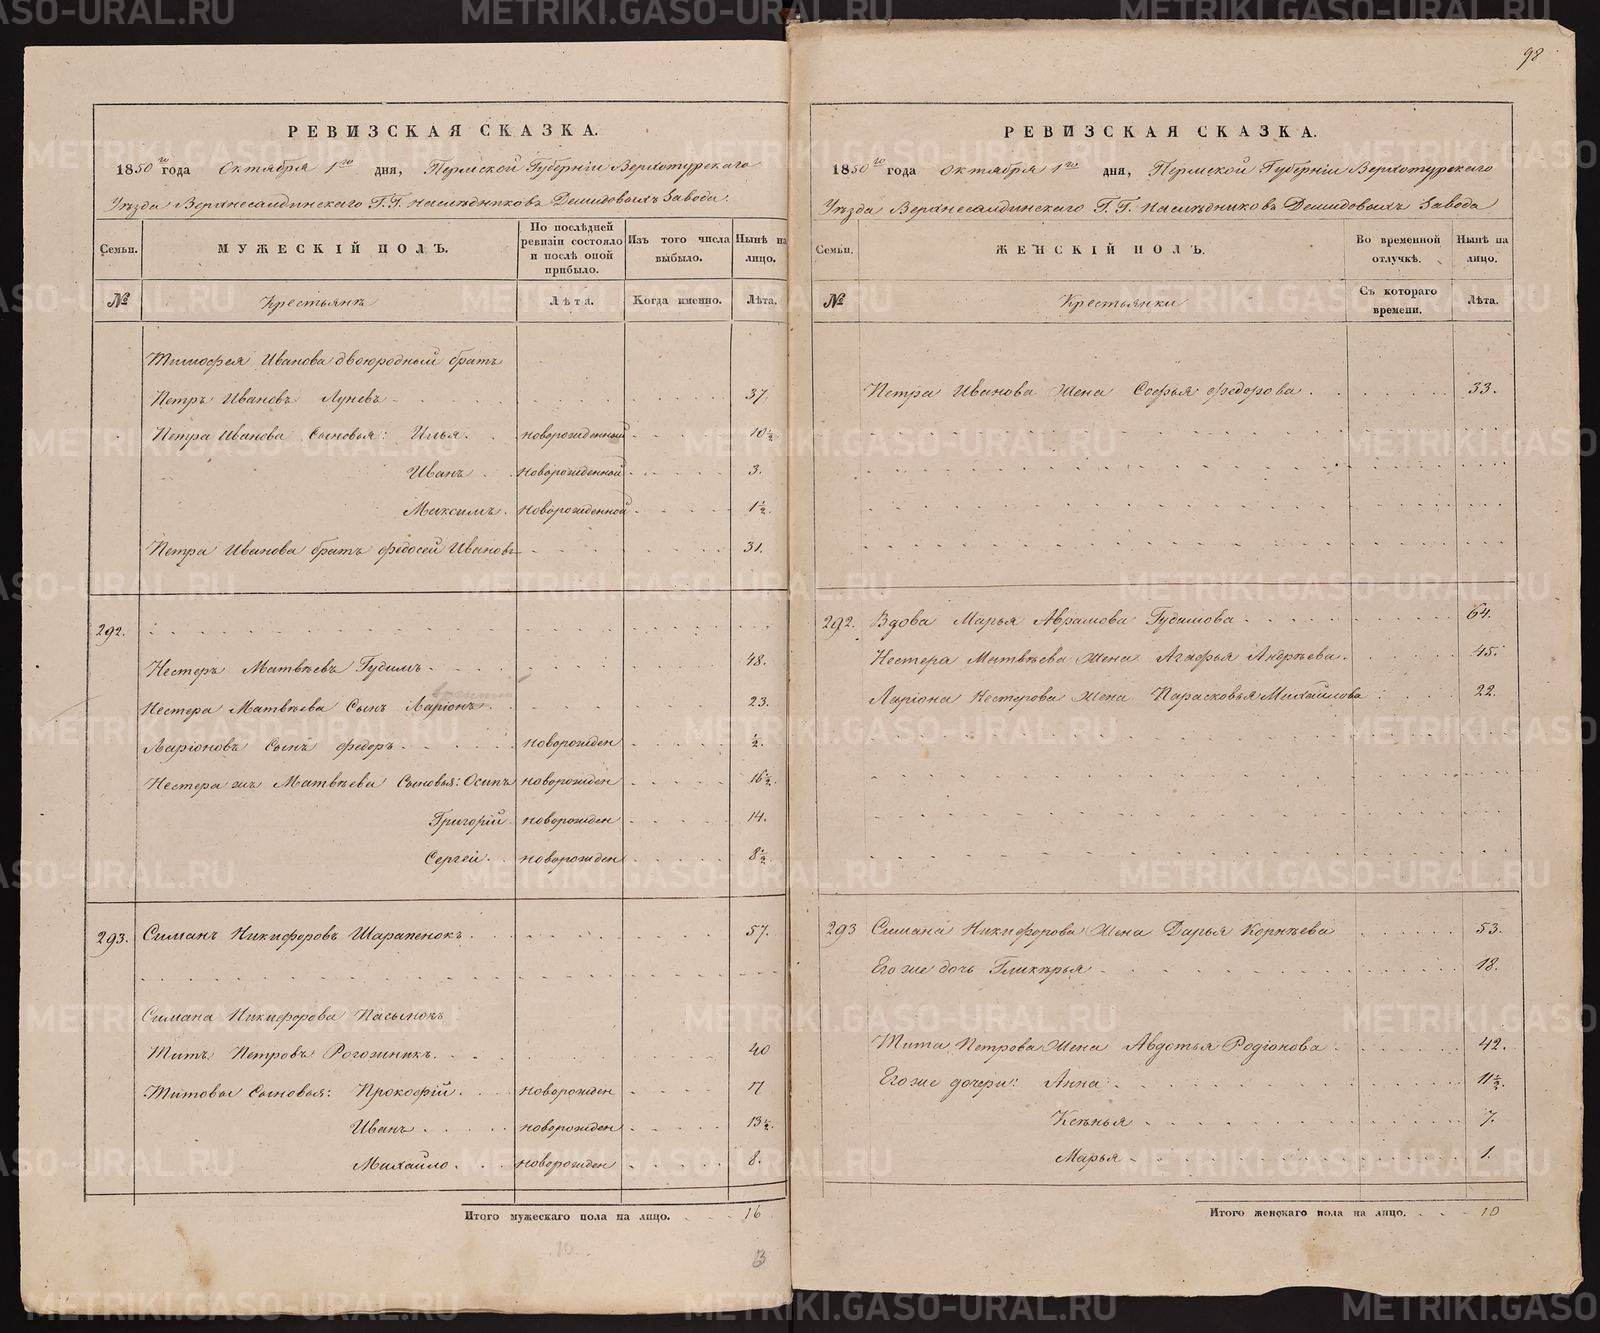 98
РЕВИЗСКАЯ СКАЗКА.
1850го года Октября 1го дня, Пермской Губерніи Верхотурскаго
Уѣзда Верхнесалдинскаго Г.Г. Наслѣдниковъ Демидовыхъ Завода.
Семьи. МУЖЕСКІЙ ПОЛЪ. По послѣдней ревизіи состояло и послѣ оной прибыло. Изъ того числа выбыло. Нынѣ на лицо.
№ Крестьянъ Лѣта. Когда именно. Лѣта.
Тимофея Иванова двоюродный братъ
Петръ Ивановъ Луневъ 37.
Петра Иванова Сыновья: Илья. новорожденной 10½
Иванъ новорожденной 3.
Максимъ. новорожденной 1½.
Петра Иванова братъ федосей Ивановъ 31.
292.
Нестеръ Матвѣевъ Гудимъ 48.
Нестера Матвѣева Сынъ Ларіонъ 23.
Ларіоновъ Сынъ федоръ новорожден ½.
Нестера жъ Матвѣева Сыновья: Осипъ новорожден 16½.
Григорій новорожден 14.
Сергей новорожден 8½.
293. Симанъ Никифоровъ Шарапенокъ. 57.
Симана Никифорова Пасынокъ
Титъ Петровъ Рогожникъ. 40
Титовы Сыновья: Прокофій. новорожден 17
Иванъ новорожден 13½.
Михайло. новорожден 8.
Итого мужескаго пола на лицо. 16
10
РЕВИЗСКАЯ СКАЗКА.
1850го года Октября 1го дня, Пермской Губерніи Верхотурскаго
Уѣзда Верхнесалдинскаго Г.Г. Наслѣдниковъ Демидовыхъ Завода
Семьи. ЖЕНСКІЙ ПОЛЪ. Во временной отлучкѣ. Нынѣ на лицо.
№ Крестьянки Съ котораго времени. Лѣта.
Петра Иванова Жена Софья федорова 33.
292. Вдова Марья Аврамова Гудимова 64.
Нестера Матвѣева Жена Агафья Андрѣева. 45.
Ларіона Нестерова Жена Парасковья Михайлова 22.
293 Симана Никифорова Жена Дарья Корнѣева 53.
Его же дочь Гликѣрья 18.
Тита Петрова Жена Авдотья Родіонова 42.
Его же дочери: Анна 11½.
Ксѣнья 7.
Марья 1.
Итого женскаго пола на лицо. 10
METRIKI.GASO-URAL.RU